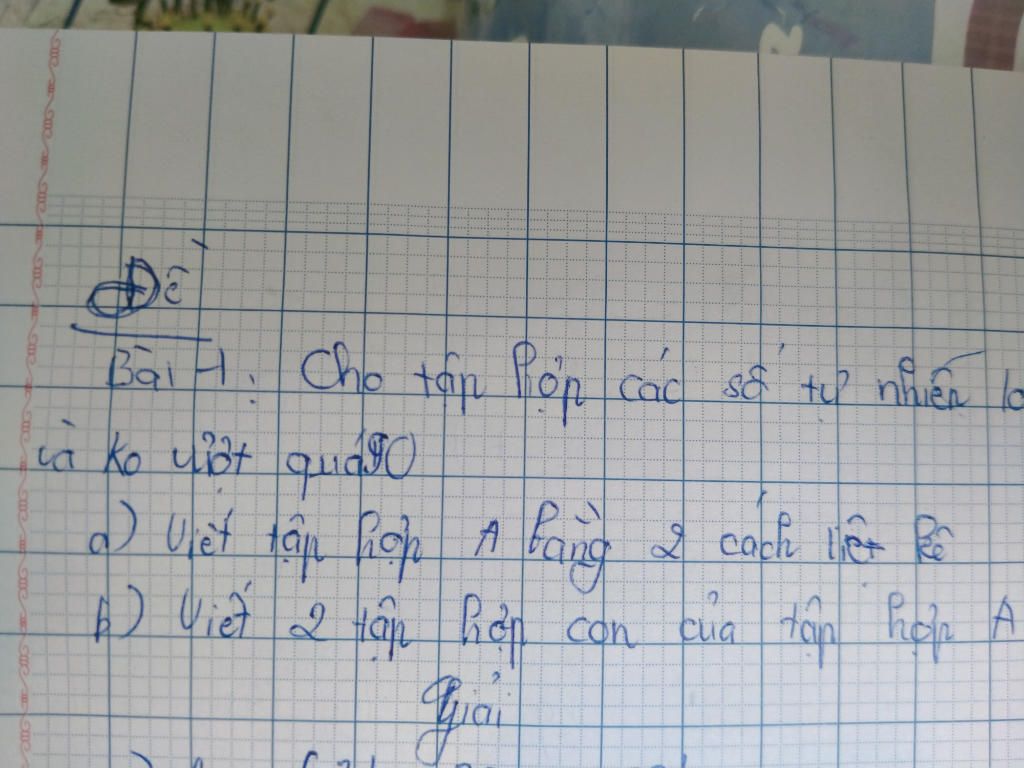 Đề
Bài 1: Cho tập hợp các số tự nhiên
và ko vượt quá
a) Viết tập hợp A bằng 2 cách liệt kê
b) Viết 2 tập hợp con của tập hợp A
Giải